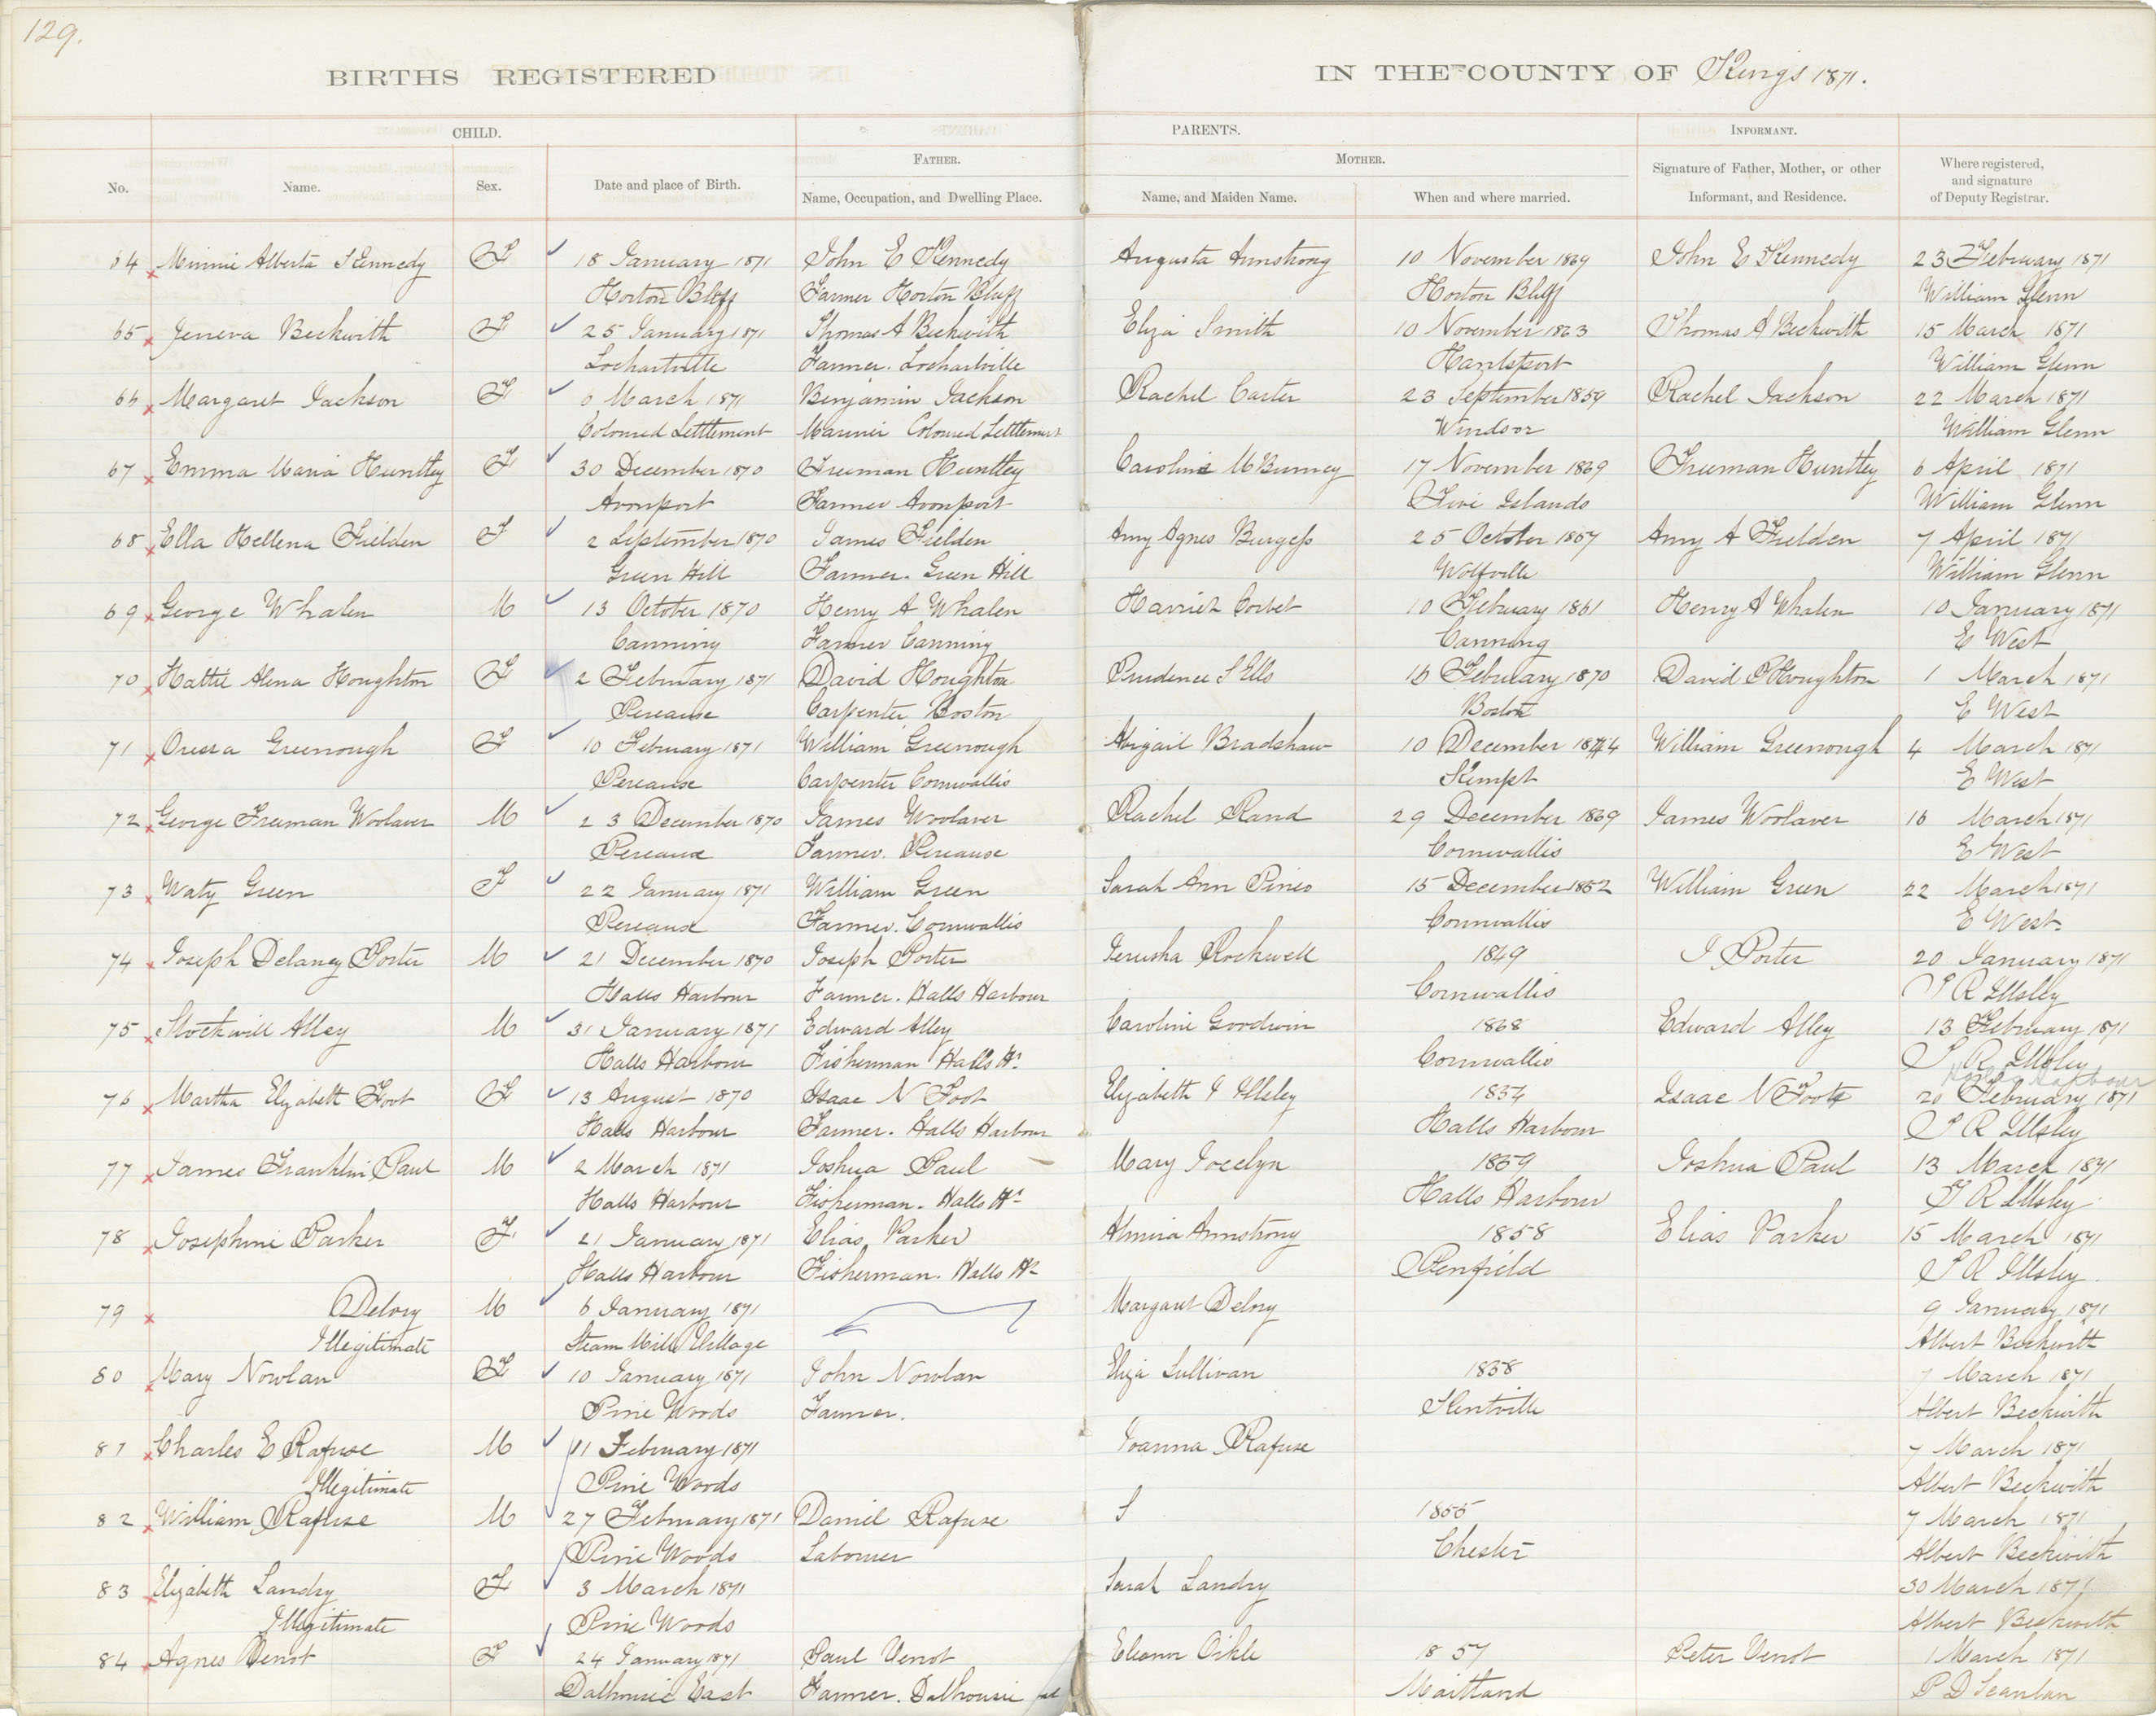 129.
BIRTHS REGISTERED IN THE COUNTY OF Kings 1871.
CHILD. PARENTS. INFORMANT.
FATHER. MOTHER.
No. Name. Sex. Date and place of Birth. Name, Occupation, and Dwelling Place. Name, and Maiden Name. When and where married. Signature of Father, Mother, or other Informant, and Residence. Where registered, and signature of Deputy Registrar.
64 Minnie Alberta Kennedy F 18 January 1871 John E Kennedy Augusta Armstrong 10 November 1869 John E Kennedy 23 February 1871
Horton Bluff Farmer Horton Bluff Horton Bluff William Glenn
65 Jeneva Beckwith F 25 January 1871 Thomas A Beckwith Eliza Smith 10 November 1863 Thomas A Beckwith 15 March 1871
Lochartville Farmer. Lochartville Hantsport William Glenn
66 Margaret Jackson F 6 March 1871 Benjamin Jackson Rachel Carter 23 September 1859 Rachel Jackson 22 March 1871
Coloured Settlement Mariner Coloured Settlement Windsor William Glenn
67 Emma Maria Huntley F 30 December 1870 Freeman Huntley Caroline McBurney 17 November 1869 Freeman Huntley 6 April 1871
Avonport Farmer Avonport Five Islands William Glenn
68 Ella Hellena Fielden F 2 September 1870 James Fielden Amy Agnes Burgess 25 October 1867 Amy A Fielden 7 April 1871
Green Hill Farmer. Green Hill Wolfville William Glenn
69 George Whalen M 13 October 1870 Henry A Whalen Harriet Corbet 10 February 1861 Henry A Whalen 10 January 1871
Canning Farmer Canning Canning E West
70 Hattie Alena Houghton F 2 February 1871 David Houghton Prudence S Ells 16 February 1870 David Houghton 1 March 1871
Pereause Carpenter Boston Boston E West
71 Oressa Greenough F 10 February 1871 William Greenough Abigail Bradshaw 10 December William Greenough 4 March 1871
Pereause Carpenter Cornwallis Kempt E West
72 George Freeman Woolaver M 23 December 1870 James Woolaver Rachel Rand 29 December 1869 James Woolaver 16 March 1871
Pereause Farmer. Pereause Cornwallis E West
73 Waty Green F 22 January 1871 William Green Sarah Ann Pineo 15 December 1852 William Green 22 March 1871
Pereause Farmer. Cornwallis Cornwallis E West
74 Joseph Delaney Porter M 21 December 1870 Joseph Porter Jerusha Rockwell 1849 J Porter 20 January 1871
Halls Harbour Farmer. Halls Harbour Cornwallis R Illsley
75 Stockwill Alley M 31 January 1871 Edward Alley Caroline Goodwin 1868 Edward Alley 13 February 1871
Halls Harbour Fisherman Halls Hr Cornwallis R Illsley
76 Martha Elizabeth Foot F 13 August 1870 Isaac N Foot Elizabeth J Illsley 1834 Isaac N Foote 20 February 1871
Halls Harbour Farmer. Halls Harbour Halls Harbour R Illsley
77 James Franklin Paul M 2 March 1871 Joshua Paul Mary Jocelyn 1859 Joshua Paul 13 March 1871
Halls Harbour Fisherman. Halls Hr Halls Harbour R Illsley
78 Josephine Parker F 21 January 1871 Elias Parker Almira Armstrong 1858 Elias Parker 15 March 1871
Halls Harbour Fisherman. Halls Hr Penfield R Illsley
79 Delory M 6 January 1871 Margaret Delory 9 January 1871
Illegitimate Steam Mill Village Albert Beckwith
80 Mary Nowlan F 10 January 1871 John Nowlan Eliza Sullivan 1838 7 March 1871
Pine Woods Farmer. Kentville Albert Beckwith
81 Charles E Rafuse M 11 February 1871 Joanna Rafuse 7 March 1871
Illegitimate Pine Woods Albert Beckwith
82 William Rafuse M 27 February 1871 Daniel Rafuse S 1855 7 March 1871
Pine Woods Labourer Chester Albert Beckwith
83 Elizabeth Landry F 3 March 1871 Sarah Landry 30 March 1871
Illegitimate Pine Woods Albert Beckwith
84 Agnes Venot F 24 January 1871 Paul Venot Eleanor Oikle 1857 Peter Venot 1 March 1871
Dalhousie East Farmer. Dalhousie Maitland P D Scanlan